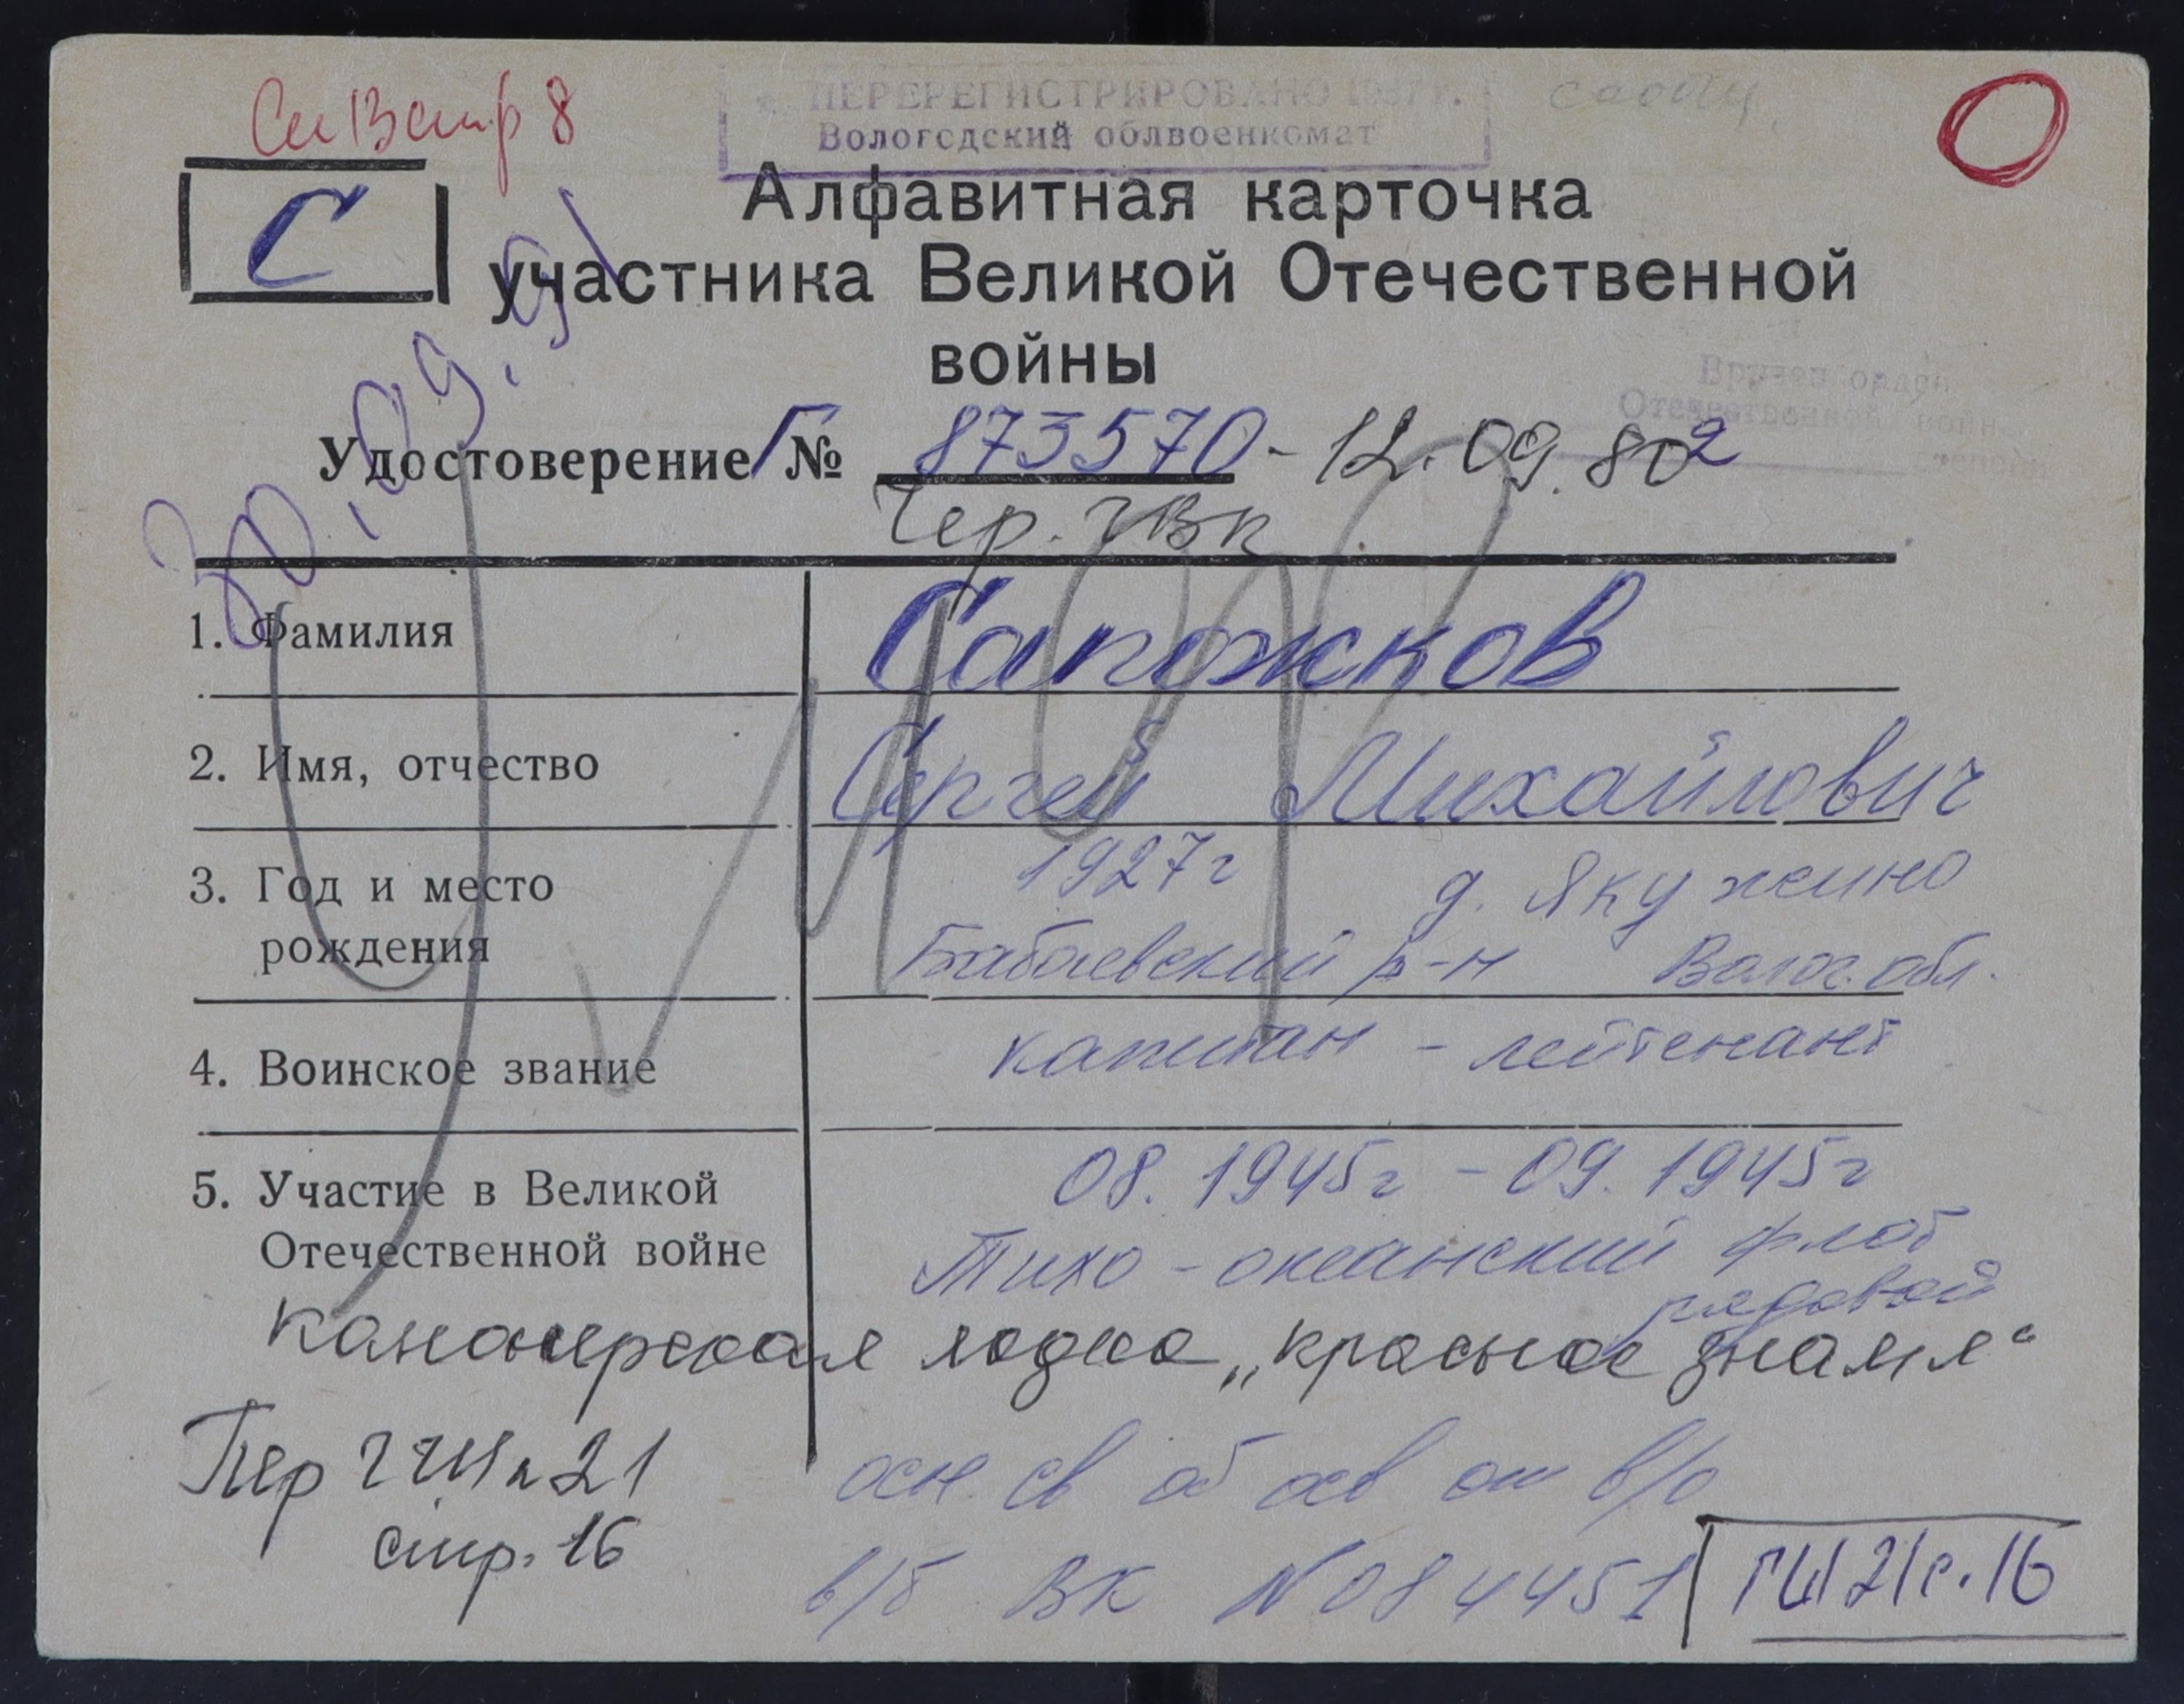 ПЕРЕРЕГИСТРИРОВАНО
Вологодский облвоенкомат
стр 8
С
Алфавитная карточка
участника Великой Отечественной
войны
Вручен орден
Отечественной войны
Удостоверение Г № 873570 - 12.09.80
Чер. ГВК
30.09.
умер
1. Фамилия Сапожков
2. Имя, отчество Сергей Михайлович
3. Год и место 1927г д. Якужино
рождения Бабаевский р-н Волог. обл.
4. Воинское звание капитан - лейтенант
5. Участие в Великой 08. 1945г - 09. 1945г
Отечественной войне Тихо-океанский флот
рядовой
канонерская лодка „красное знамя“
Пер ГШ 21
стр. 16
осн. св об
в/б ВК N 084451
ГШ 21 с. 16